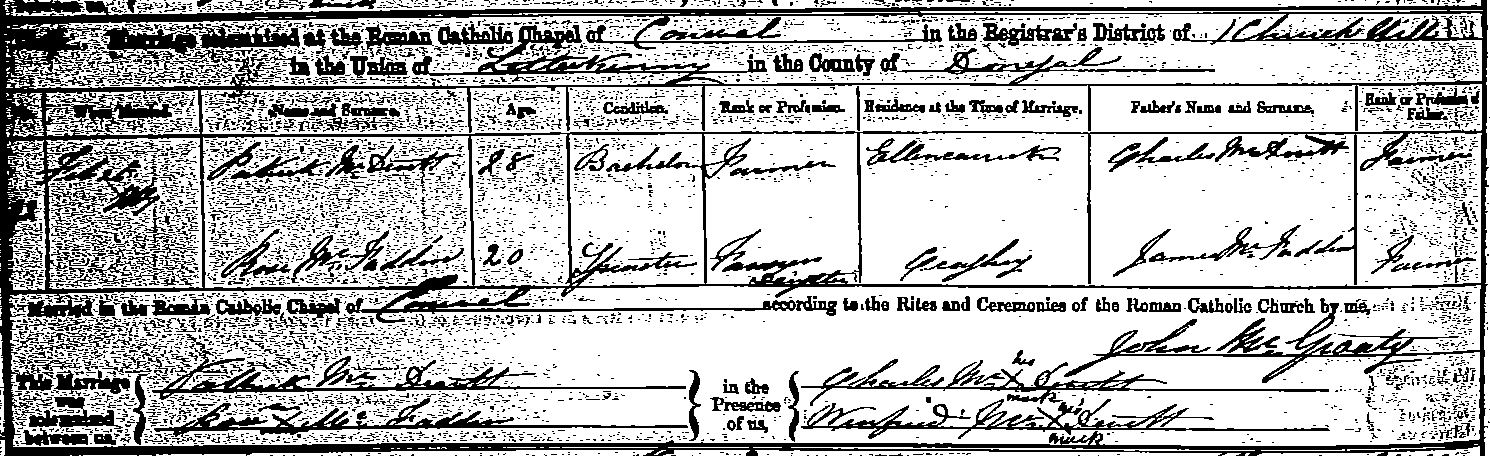 between us,
Marriage solemnized at the Roman Catholic Chapel of Conwal in the Registrar's District of Church Hill
in the Union of Letterkenny in the County of Donegal
No. When Married. Name and Surname. Age. Condition. Rank or Profession. Residence at the Time of Marriage. Father's Name and Surname. Rank or Profession of Father.
Patrick McDevitt 28 Bachelor Farmer Charles McDevitt Farmer
Rose McFaddin 20 Spinster Farmers Daughter James McFaddin Farmer
Married in the Roman Catholic Chapel of Conwal according to the Rites and Ceremonies of the Roman Catholic Church by me,
John Mc Groaty
This Marriage was solemnized between us,
Patrick Mc Devitt
Rose X Mc Faddin
in the Presence of us,
Charles Mc X Devitt his mark
Winfred Mc X Devitt mark